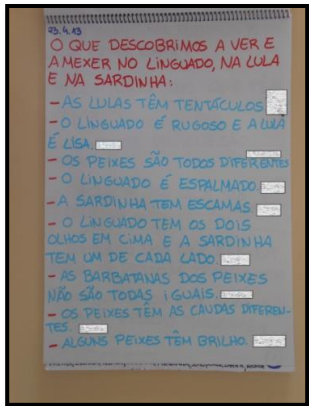 23.4.13
O QUE DESCOBRIMOS A VER E
A MEXER NO LINGUADO, NA LULA
E NA SARDINHA:
- AS LULAS TÊM TENTÁCULOS
- O LINGUADO É RUGOSO E A LULA
É LISA.
- OS PEIXES SÃO TODOS DIFERENTES
- O LINGUADO É ESPALMADO.
- A SARDINHA TEM ESCAMAS
- O LINGUADO TEM OS DOIS
OLHOS EM CIMA E A SARDINHA
TEM UM DE CADA LADO.
- AS BARBATANAS DOS PEIXES
NÃO SÃO TODAS IGUAIS.
- OS PEIXES TÊM AS CAUDAS DIFEREN-
TES.
- ALGUNS PEIXES TÊM BRILHO.